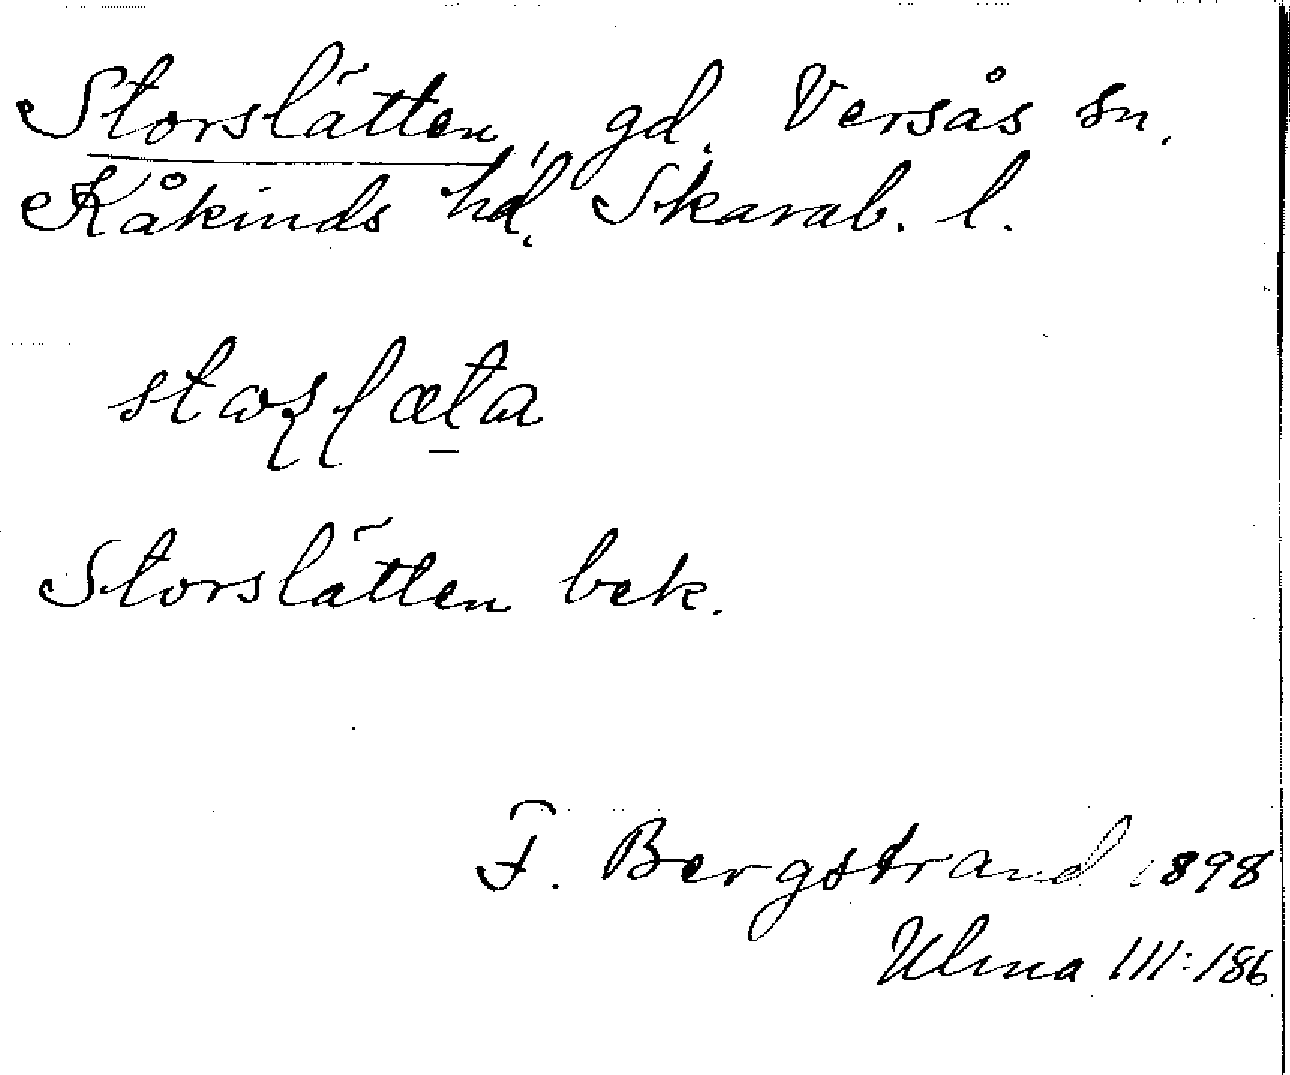 Storslätten, gd. Versås sn.
Kåkinds hd. Skarab. l.
Storslätten bek.
F. Bergstrand 1898
Ulma III:186